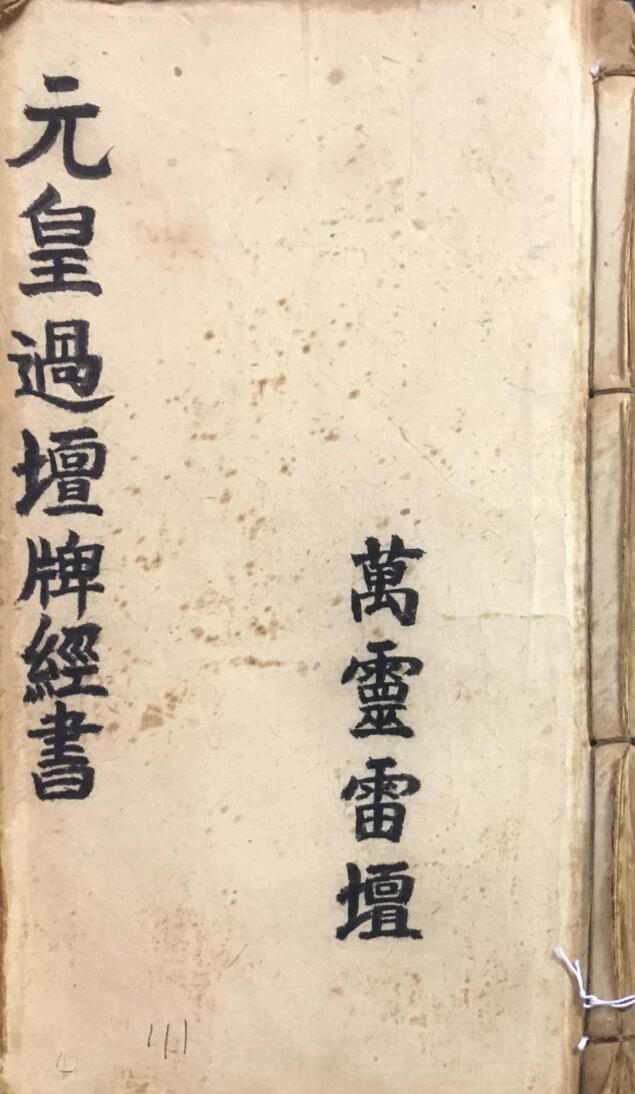 元皇過壇牌經書
萬靈雷壇